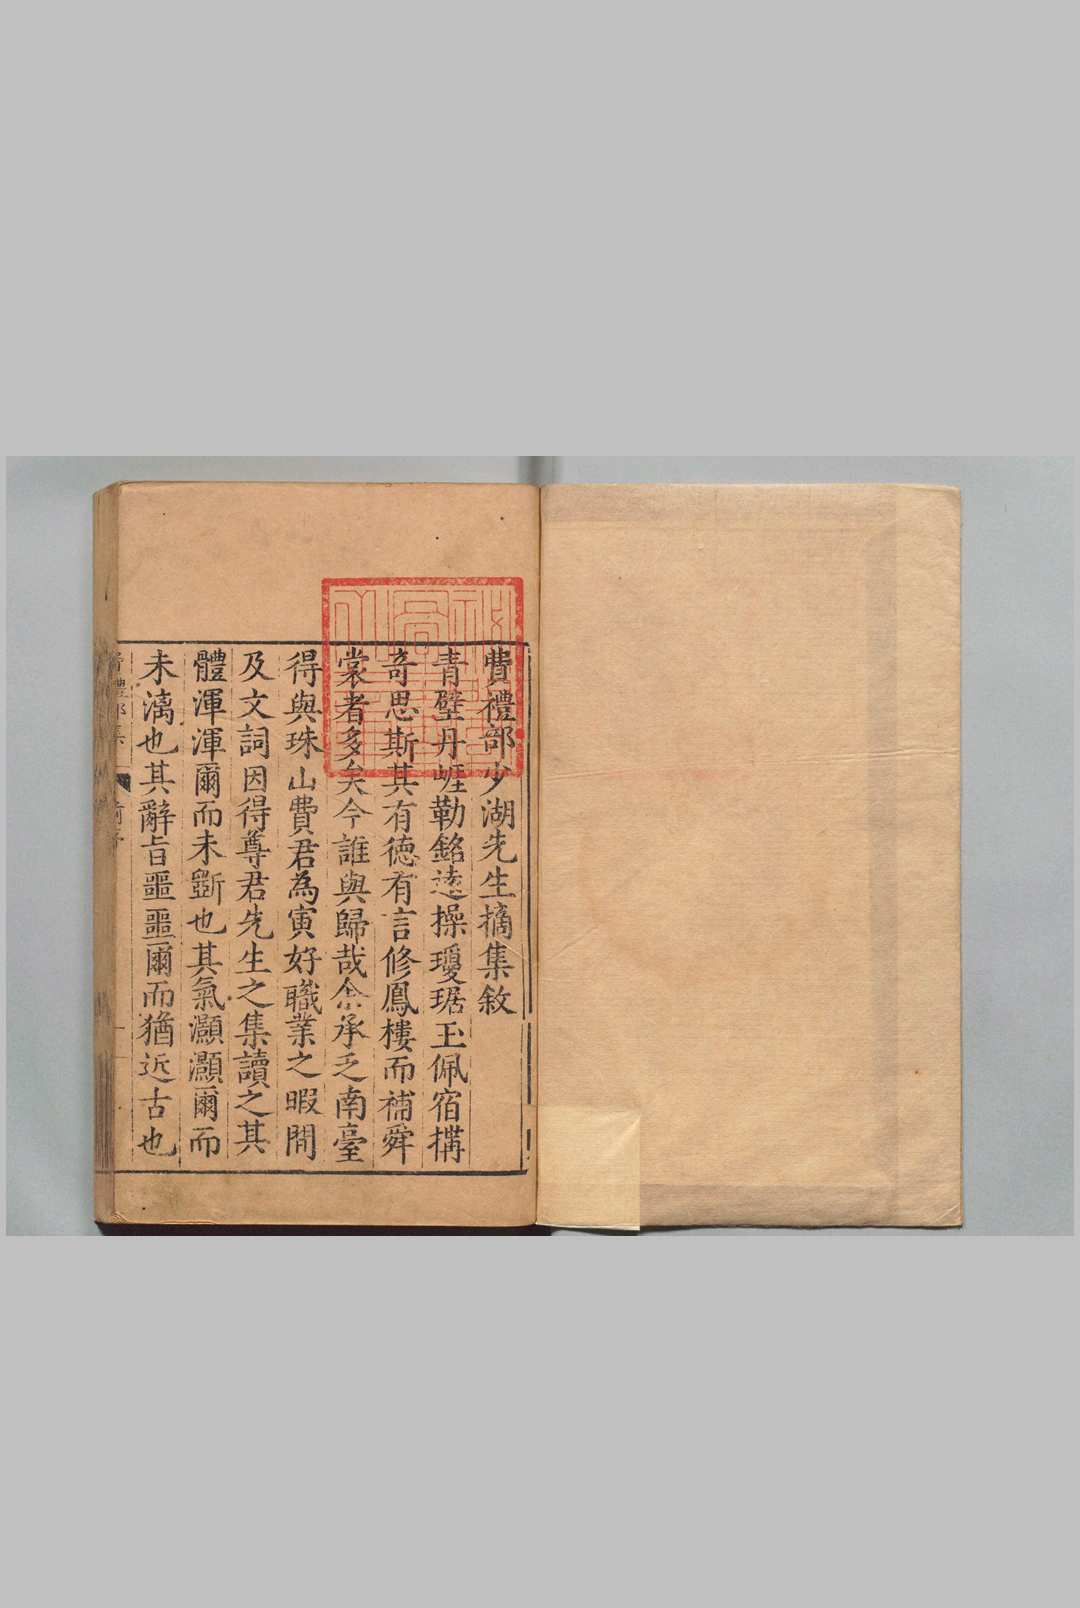 費禮部少湖先生摘集敘
青壁丹崕勒銘逺操瓊琚玉佩宿搆
奇思斯其有德有言修鳳樓而補舜
裳者多矣今誰與歸哉余承乏南臺
得與珠山費君為寅好職業之暇閒
及文詞因得尊君先生之集讀之其
體渾渾爾而未斵也其氣灝灝爾而
未漓也其辭旨噩噩爾而猶近古也